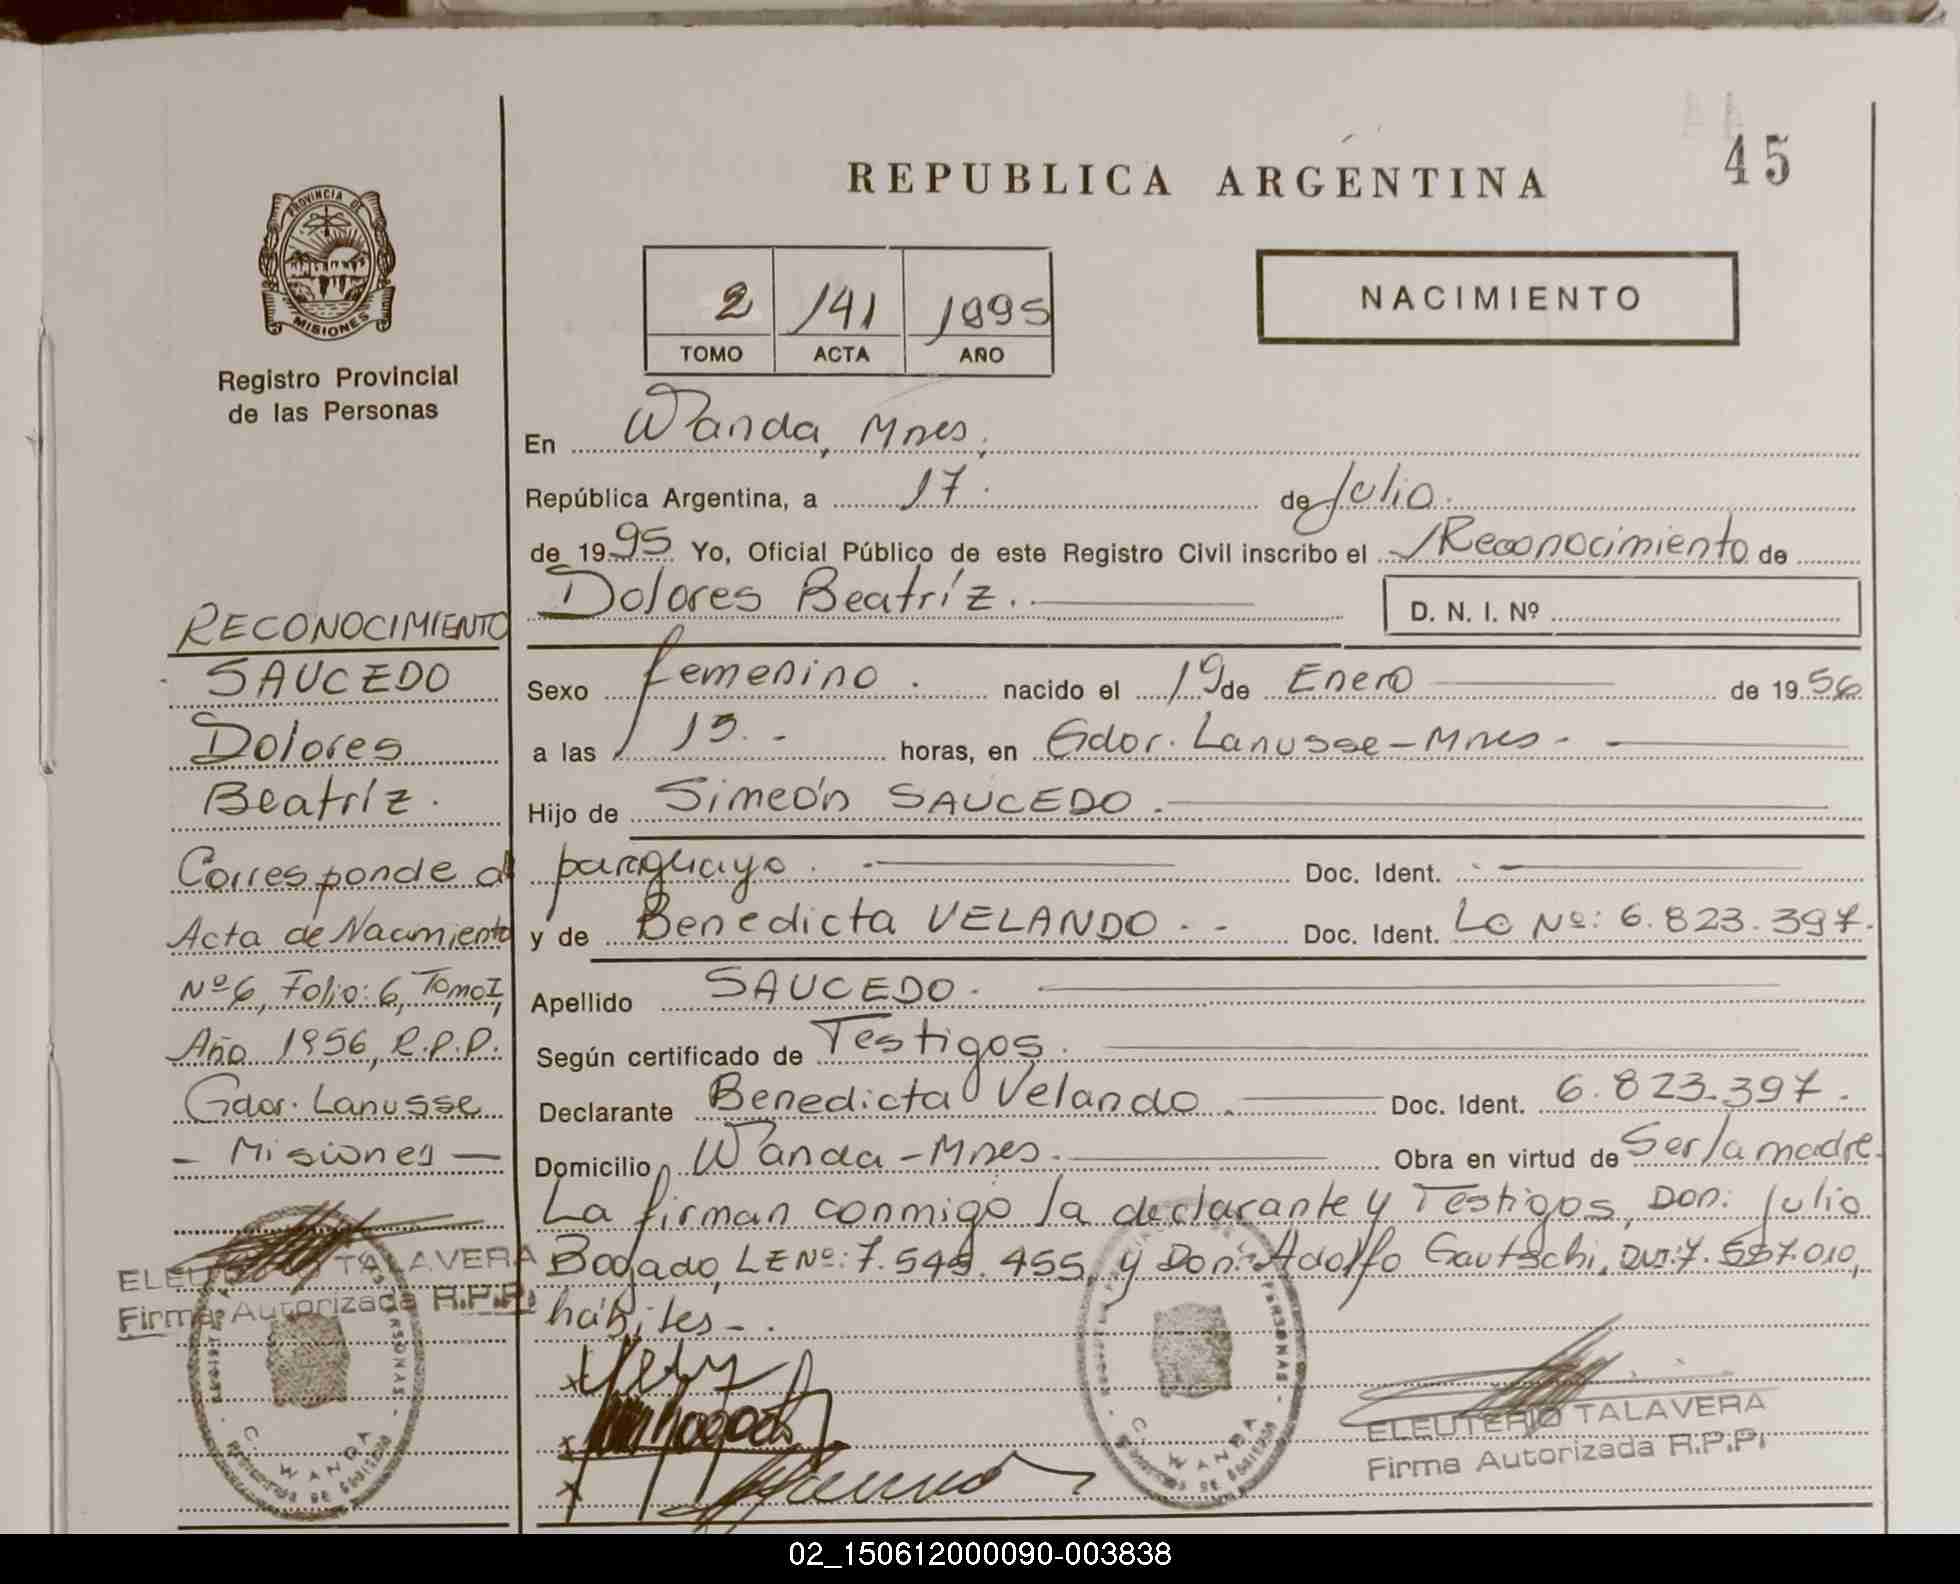 45
REPUBLICA ARGENTINA
PROVINCIA DE
MISIONES
Registro Provincial
de las Personas
2 141 1995
TOMO ACTA AÑO
NACIMIENTO
En Wanda, Mnes,
República Argentina, a 17. de Julio.
de 1995 Yo, Oficial Público de este Registro Civil inscribo el Reconocimiento de
Dolores Beatríz.
D. N. I. Nº
Sexo femenino. nacido el 19 de Enero de 1956
a las 15.- horas, en Gdor. Lanusse-Mnes.-
Hijo de Simeón SAUCEDO.
paraguayo. Doc. Ident.
y de Benedicta VELANDO.- Doc. Ident. LC Nº: 6.823.397.
Apellido SAUCEDO.
Según certificado de Testigos.
Declarante Benedicta Velando. Doc. Ident. 6.823.397.
Domicilio Wanda-Mnes. Obra en virtud de Ser la madre.
La firman conmigo la declarante y Testigos, Don: Julio
Bogado, LE Nº: 7.545.455, y Don: Adolfo Gautschi, 7.557.010,
hábiles-.
ELEUTERIO TALAVERA
Firma Autorizada R.P.P.
C. WANDA
RECONOCIMIENTO
SAUCEDO
Dolores
Beatríz.
Corresponde al
Acta de Nacimiento
Nº 6, Folio: 6, Tomo I,
Año 1956, R.P.P.
Gdor. Lanusse
- Misiones -
TALAVERA
Firma Autorizada R.P.P.
C. WANDA
02_150612000090-003838